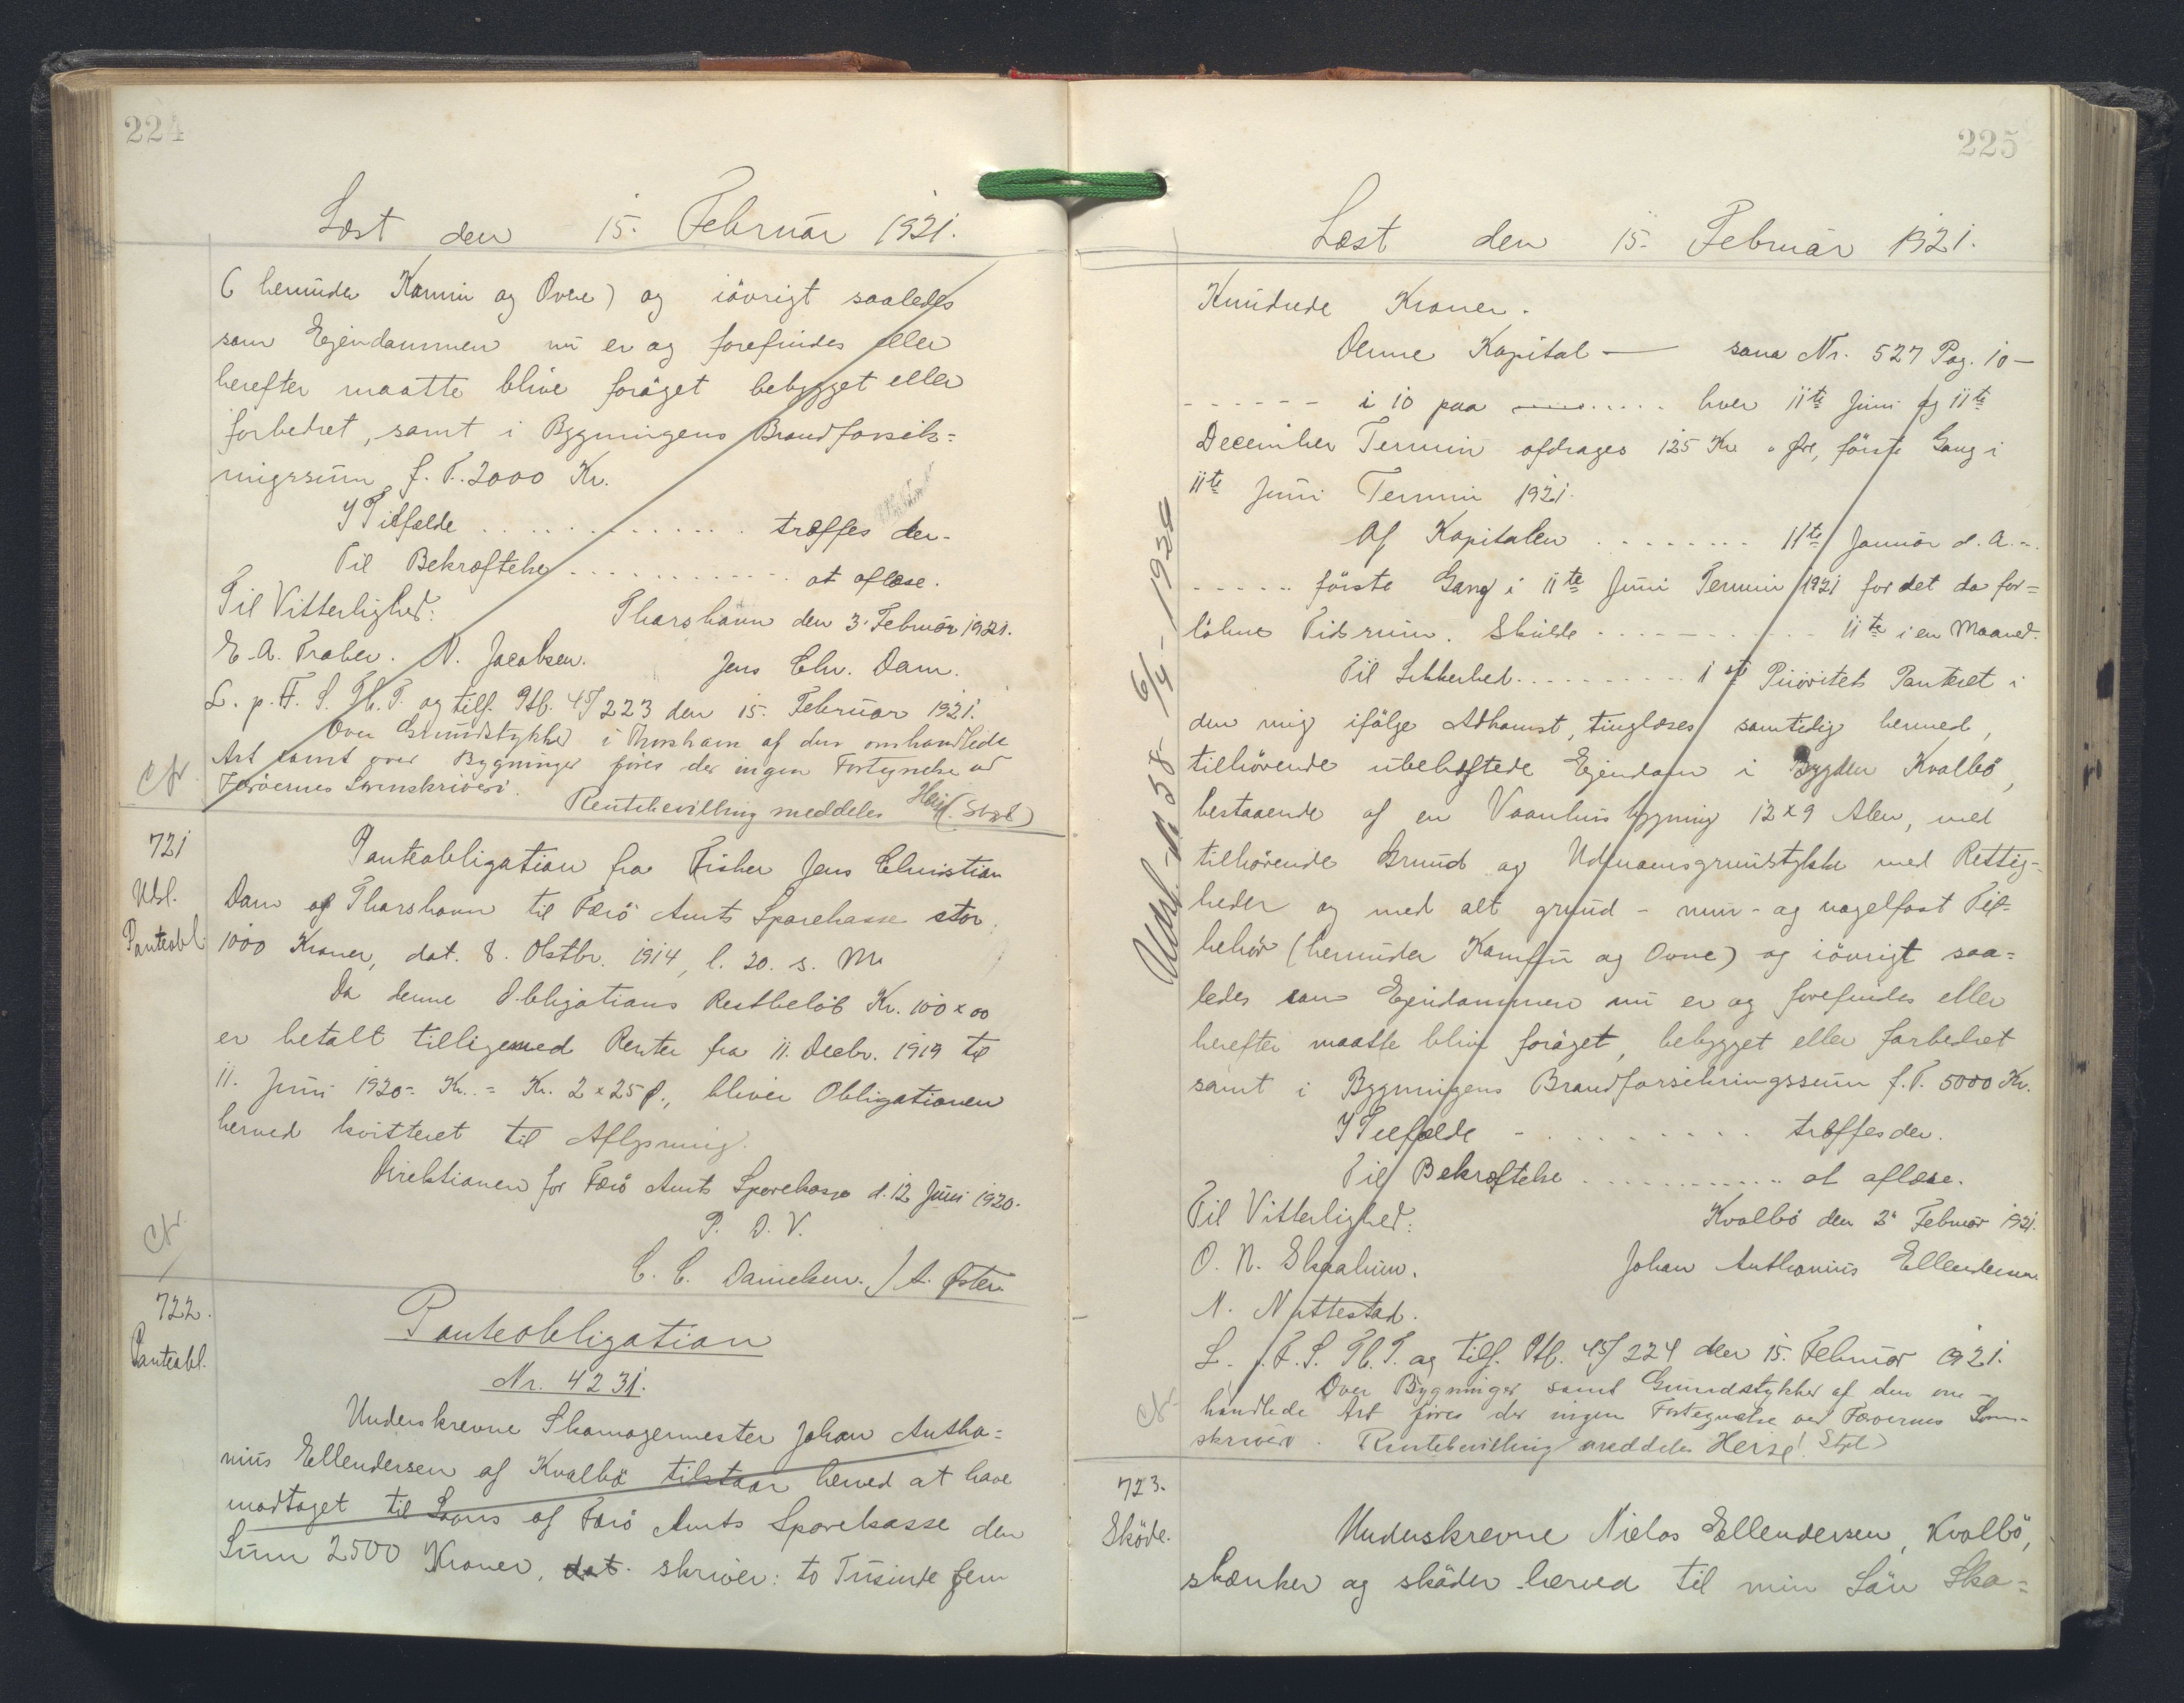 224
Læst den 15. Februar 1921.
( herunder Kamin og Ovne) og iövrigt saaledes
som Ejendommen nu er og forefindes eller
herefter maatte blive foröget bebygget eller
forbedret, samt i Bygningens Brandforsik=
ringssum f. T. 2000 Kr.
I Tilfælde . . . . . . . . . . . . træffes der.
Til Bekræftelse . . . . . . . . . . . . at aflæse.
Til Vitterlighed: Thorshavn den 3. Februar 1921.
E. A. Fraher. N. Jacobsen. Jens Chr. Dam.
L. p. F. S. Th. T. og tilf. Ptb. 45/223 den 15. Februar 1921.
Over Grundstykker i Thorshavn af den omhandlede
Art samt over Bygninger föres der ingen Fortegnelse ved
Færöernes Sorenskriveri.
Rentebevilling meddeles (Stpl)
cfr.
721
Udsl.
Panteobl.
Panteobligation fra Fisker Jens Christian
Dam af Thorshavn til Færö Amts Sparekasse stor
1000 Kroner, dat. 8. Oktbr. 1914, l. 20. s. M.
Da denne Obligations Restbelöb Kr. 100 x 00
er betalt tilligemed Renter fra 11. Decbr. 1919 til
11. Juni 1920 = Kr. . = Kr. 2 x 25 Ø., bliver Obligationen
herved kvitteret til Aflysning.
Direktionen for Færö Amts Sparekasse d. 12 Juni 1920.
P. D. V.
C. C. Danielsen. / A. Öster.
cfr.
722.
Panteobl.
Panteobligation
Nr. 4231.
Underskrevne Skomagermester Johan Antho=
nius Ellendersen af Kvalbö tilstaar herved at have
modtaget til Laans af Færö Amts Sparekasse den
Sum 2500 Kroner, dat. skriver: to Tusinde fem
225
Læst den 15. Februar 1921.
Hundrede Kroner.
Denne Kapital — som Nr. 527 Pag. 10 —
- - - - - - i 10 paa . . . . . . . . hver 11te Juni og 11te
December Termin afdrages 125 Kr. " Øre, förste Gang i
11te Juni Termin 1921.
Af Kapitalen . . . . . . . . 11te Januar d. A. . .
. . . . . . förste Gang i 11te Juni Termin 1921 for det da for=
löbne Tidsrum. Skulde . . . . . . . . . . . 11te i en Maaned.
Til Sikkerhed . . . . . . . . . . 1ste Prioritets Panteret i
den mig ifölge Adkomst, tinglæses samtidig hermed,
tilhörende ubehæftede Ejendom i Bygden Kvalbö,
bestaaende af en Vaanhusbygning 12 x 9 Alen, med
tilhörende Grund og Udmarksgrundstykke med Rettig-
heder og med alt grund - mur - og nagelfast Til-
behör (herunder Komfur og Ovne) og iövrigt saa=
ledes som Ejendommen nu er og forefindes eller
herefter maatte blive foröget, bebygget eller forbedret
samt i Bygningens Brandforsikringssum f. T. 5000 Kr.
I Tilfælde - . . . . . . . . . træffes der.
Til Bekræftelse . . . . . . . . . . . . at aflæse.
Til Vitterlighed: Kvalbö den 2. Februar 1921.
O. N. Skaalum. Johan Anthonius Ellendersen
N. Nattestad.
L. p. F. S. Th. T. og tilf. Ptb. 45/224 den 15. Februar 1921.
Over Bygninger samt Grundstykker af den om-
handlede Art föres der ingen Fortegnelse ved Færöernes Soren-
skriveri. Rentebevilling meddeles Heise! Stpl)
cfr.
Udsl. 6/4 - 193
723.
Sköde.
Underskrevne Nielas Ellendersen, Kvalbö,
skænker og sköder herved til min Sön Sko=